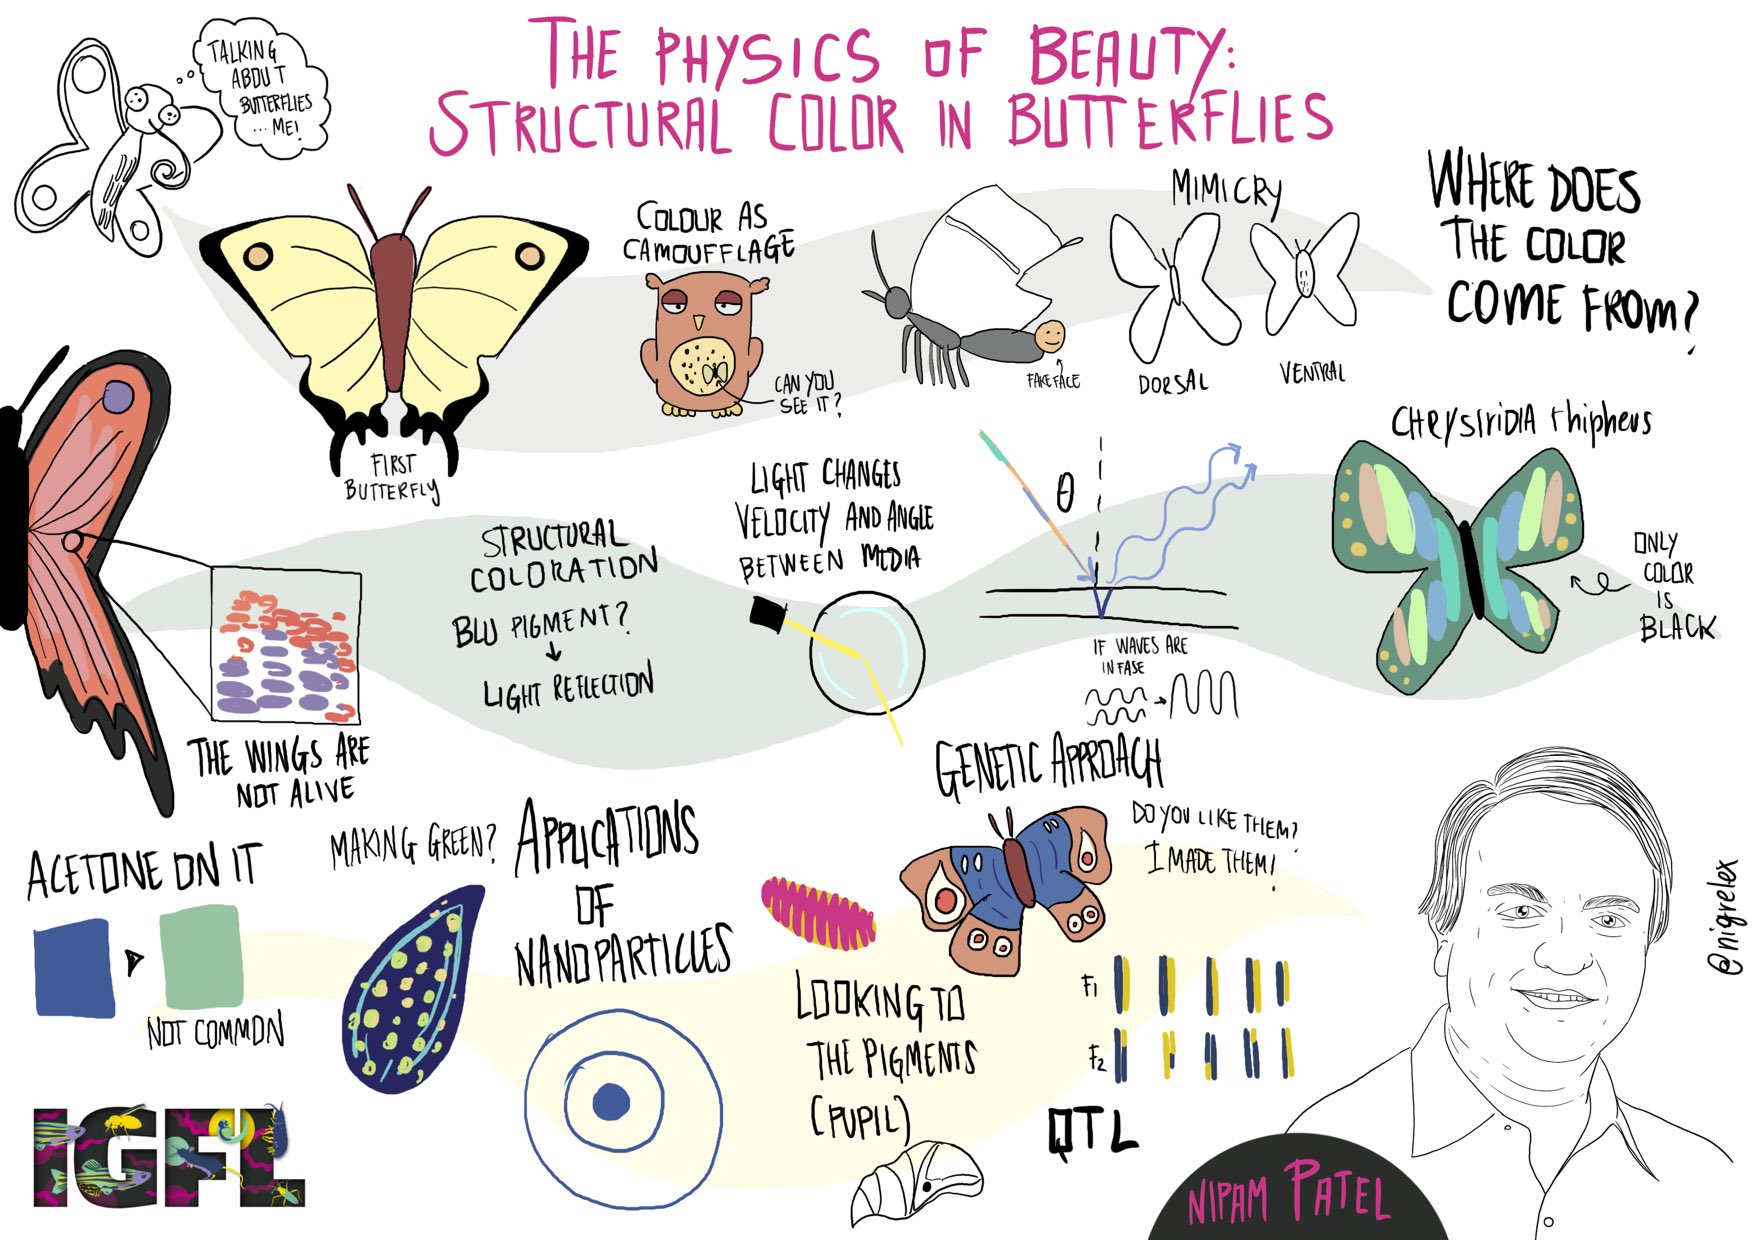 THE PHYSICS OF BEAUTY:
STRUCTURAL COLOR IN BUTTERFLIES
TALKING
ABOUT
BUTTERFLIES
... ME!
FIRST
BUTTERFLY
COLOUR AS
CAMOUFFLAGE
CAN YOU
SEE IT?
FAKE FACE
MIMICRY
DORSAL
VENTRAL
WHERE DOES
THE COLOR
COME FROM?
THE WINGS ARE
NOT ALIVE
STRUCTURAL
COLORATION
BLU PIGMENT?
LIGHT REFLECTION
LIGHT CHANGES
VELOCITY AND ANGLE
BETWEEN MEDIA
θ
IF WAVES ARE
IN FASE
CHRYSIRIDIA rhipheus
ONLY
COLOR
IS
BLACK
ACETONE ON IT
NOT COMMON
MAKING GREEN?
APPLICATIONS
OF
NANOPARTICLES
GENETIC APPROACH
DO YOU LIKE THEM?
I MADE THEM!
LOOKING TO
THE PIGMENTS
(PUPIL)
F1
F2
QTL
NIPAM PATEL
@nigrelex
IGFL